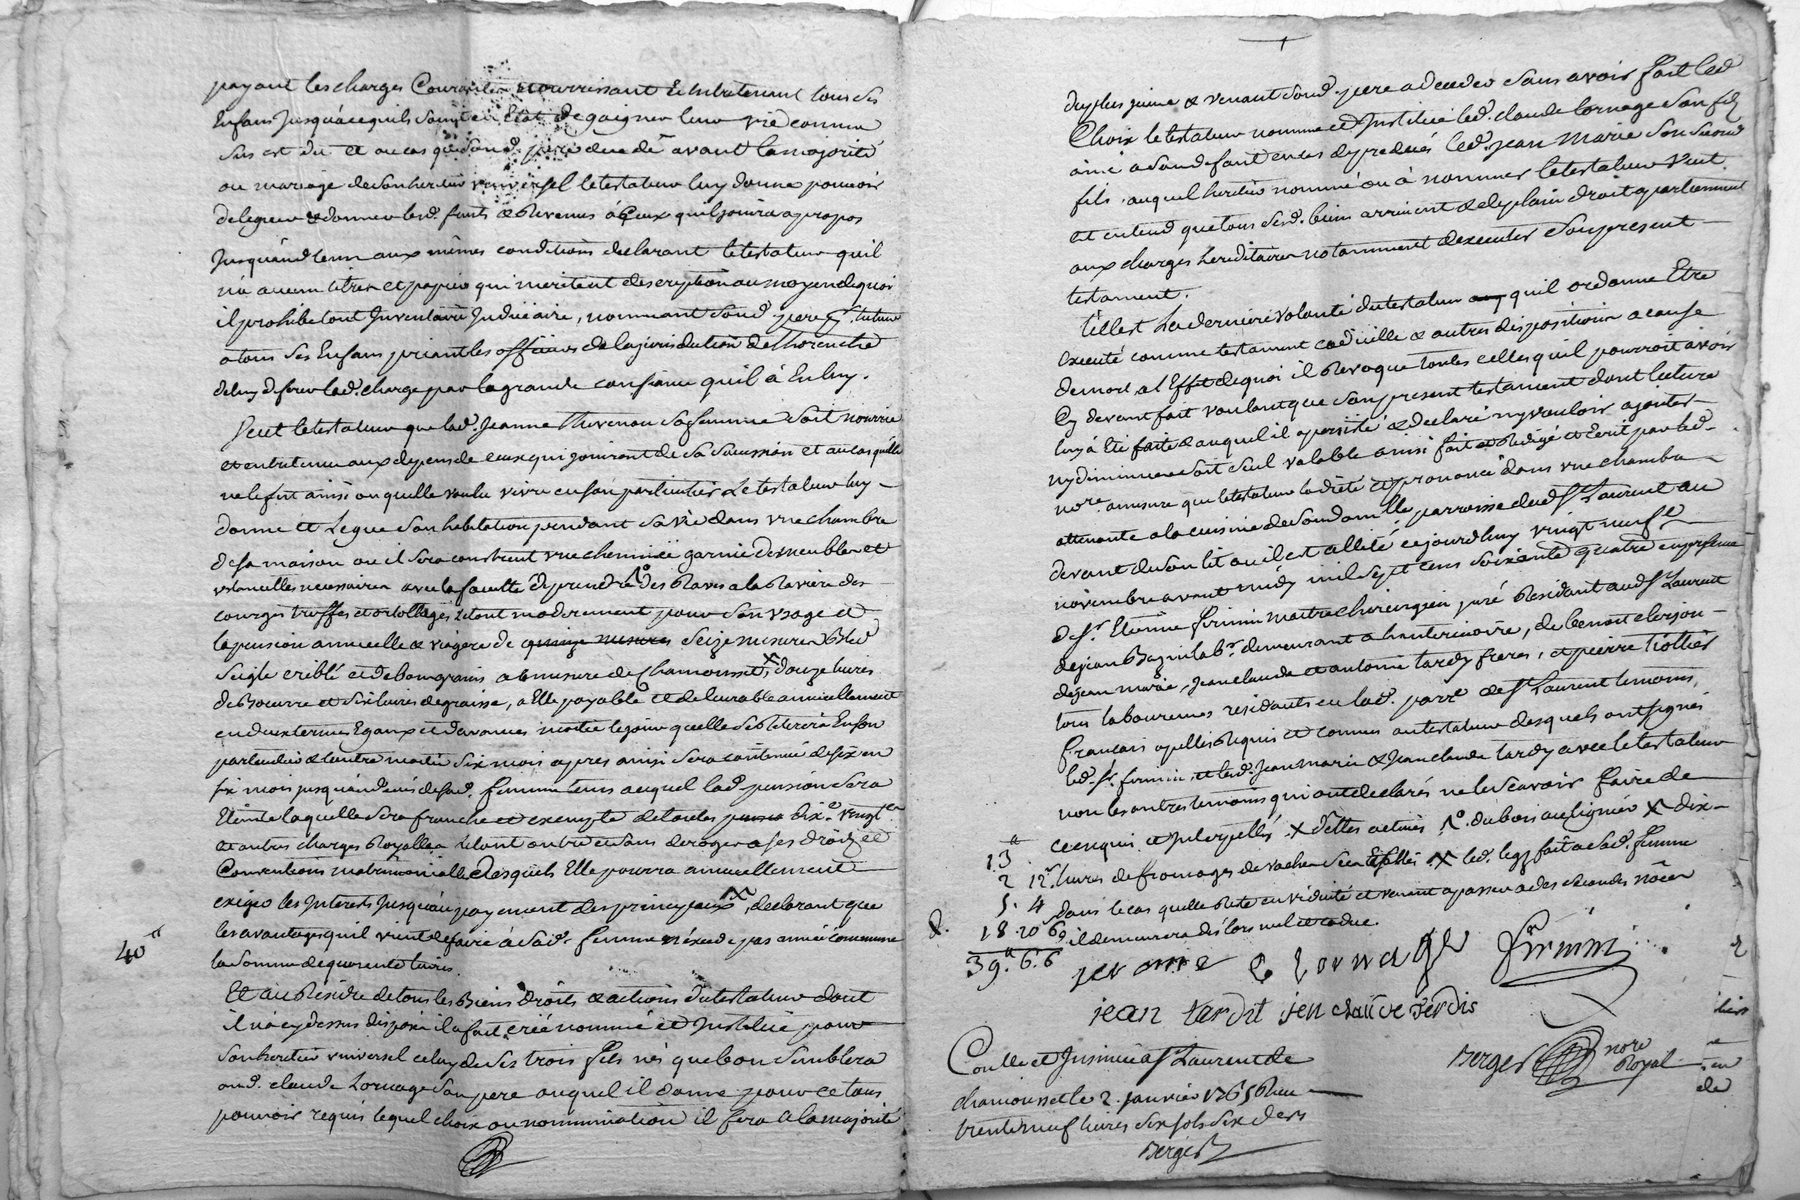 payant les charges Courantes nourrissant et Entretenant tous ses
Enfans Jusqu'àce qu'ils Soint en Etat de gaigner leur vie comme
Sus est dit et au cas que Sond. pere decede avant la majorité
ou mariage de Son heritier universel le testateur luy donne pouvoir
de leguer & donner lesd. fruits & Revenus à Ceux qu'il jouira apropos
Jusqu'aud. tems aux mêmes conditions declarant le testateur qu'il
n'a aucun titres et papiers qui meritent description au moyen de quoi
il prohibe tout Inventaire Judiciaire, nommant Sond. pere tuteur
a tous Ses Enfans priant les officiers de la jurisdiction de Thorenche
de luy deferer lad. charge par la grande confiance qu'il à En luy.
Veut le testateur que lad. Jeanne Thevenon Sa femme Soit nourrie
et entretenue aux depens de ceux qui jouiront de Sa Succession et au cas qu'elle
ne le fut ainsi ou qu'elle voulu vivre en son particulier le testateur luy
donne et Legue Son habitation pendant Sa vie dans une chambre
de Sa maison ou il Sera construit une cheminée garnie de meubles et
ustencilles necessaires avec la faculté de prendre des Raves a la Raviere des
courges truffes et ortollages letout moderement pour Son usage et
la pension annuelle & viagere de quinze mesures Seize mesures Bled
Seigle criblé et de bon grains a la mesure de Chamousset, X douze livres
de Beurre et Six livres de graisse, a Elle payable et delivrable annuellement
en deux termes Egaux et d'avance moitié le jour qu'elle Se Retirera En Son
particulier & l'autre moitié Six mois apres ainsi Sera continué de Six en
Six mois jusqu'au deces de Sad. femme tems auquel lad. pension Sera
Eteinte laquelle Sera franche et exempte de toutes dix.e vingt.e
et autres charges Royalles letout outre et Sans deroger a Ses Droits et
Conventions matrimonialles desquels Elle pourra annuellement
exiger les Interets Jusqu'au payement des principaux, declarant que
les avantages qu'il vient de faire à Sad. femme n'éxcede pas année Commune
la Somme de quarente livres.
40
Et au Residu de tous les Biens droits & actions du testateur dont
il n'a cy dessus disposé il a fait, créé nommé et Institué pour
Son heritier universel celuy de Ses trois fils nés que bon Semblera
aud. claude Lornage Son pere auquel il donne pour ce tous
pouvoir requis lequel choix ou nomination il fera a la majorité
du plus jeune & venant Sond. pere a deceder Sans avoir fait led.
Choix le testateur nomme et Institue led. claude lornage Son fils
ainé a Son defaut en cas de predeces led. jean marie Son Second
fils, auquel heritier nommé ou à nommer le testateur veut
et entend que tous Sesd. biens arrivent & de plain droit apartiennent
aux charges hereditaires notamment d'executer Son present
testament.
Telle est La derniere volonté du testateur qu'il ordonne Etre
executé comme testament codicille & autres dispositions a cause
de mort, a l'Effet de quoi il Revoque toutes celles qu'il pourroit avoir
Cy devant fait voulant que Son present testament dont lecture
luy à Eté faite & auquel il a persisté & declaré n'y vouloir ajouter
ny diminuer Soit Seul valable ainsi fait et Redigé et Ecrit par led.
no.re amesure que le testateur la dicté et prononcé dans une chambre
attenante a la cuisine de Son domicille parroisse dud. St Laurent au
devant de Son lit ou il est allité cejourd'huy vingt neuf
novembre avant midy mil Sept cens Soixante quatre en presence
de Sr. Etienne firmin maitre chirurgien juré Residant aud. St Laurent
de jean Bazin lab.r demeurant a hauterivoire, de benoit clerjon
de jean marie, jean claude et antoine tardy freres, et pierre Trollier
tous laboureurs residants en lad. parr.e de St Laurent temoins,
Francais apellés Requis et connus au testateur desquels ont Signés
led. Sr. firmin, et led. Jean marie & Jean claude tardy avec le testateur
non les autres temoins qui ont declarés ne le Scavoir faire de
ce enquis et Interpellés. X dettes actives du bois au lignier X dix
livres de fromages de vache Secs X led. legs fait a Sad. femme
dans le cas qu'elle Reste en viduité et venant a passer a des Secondes nôces
il demeurera dès lors nul et caduc.
13
2 12
5. 4
18. 10. 6
39. 6. 6
jerome lornage firmin
jean tardit jen claude terdis
Berger nore Royal
Contllé et Insinué a St Laurent de
chamousset le 2. janvier 1765 Reçu
trente neuf livres Six sols Six ders
Berger